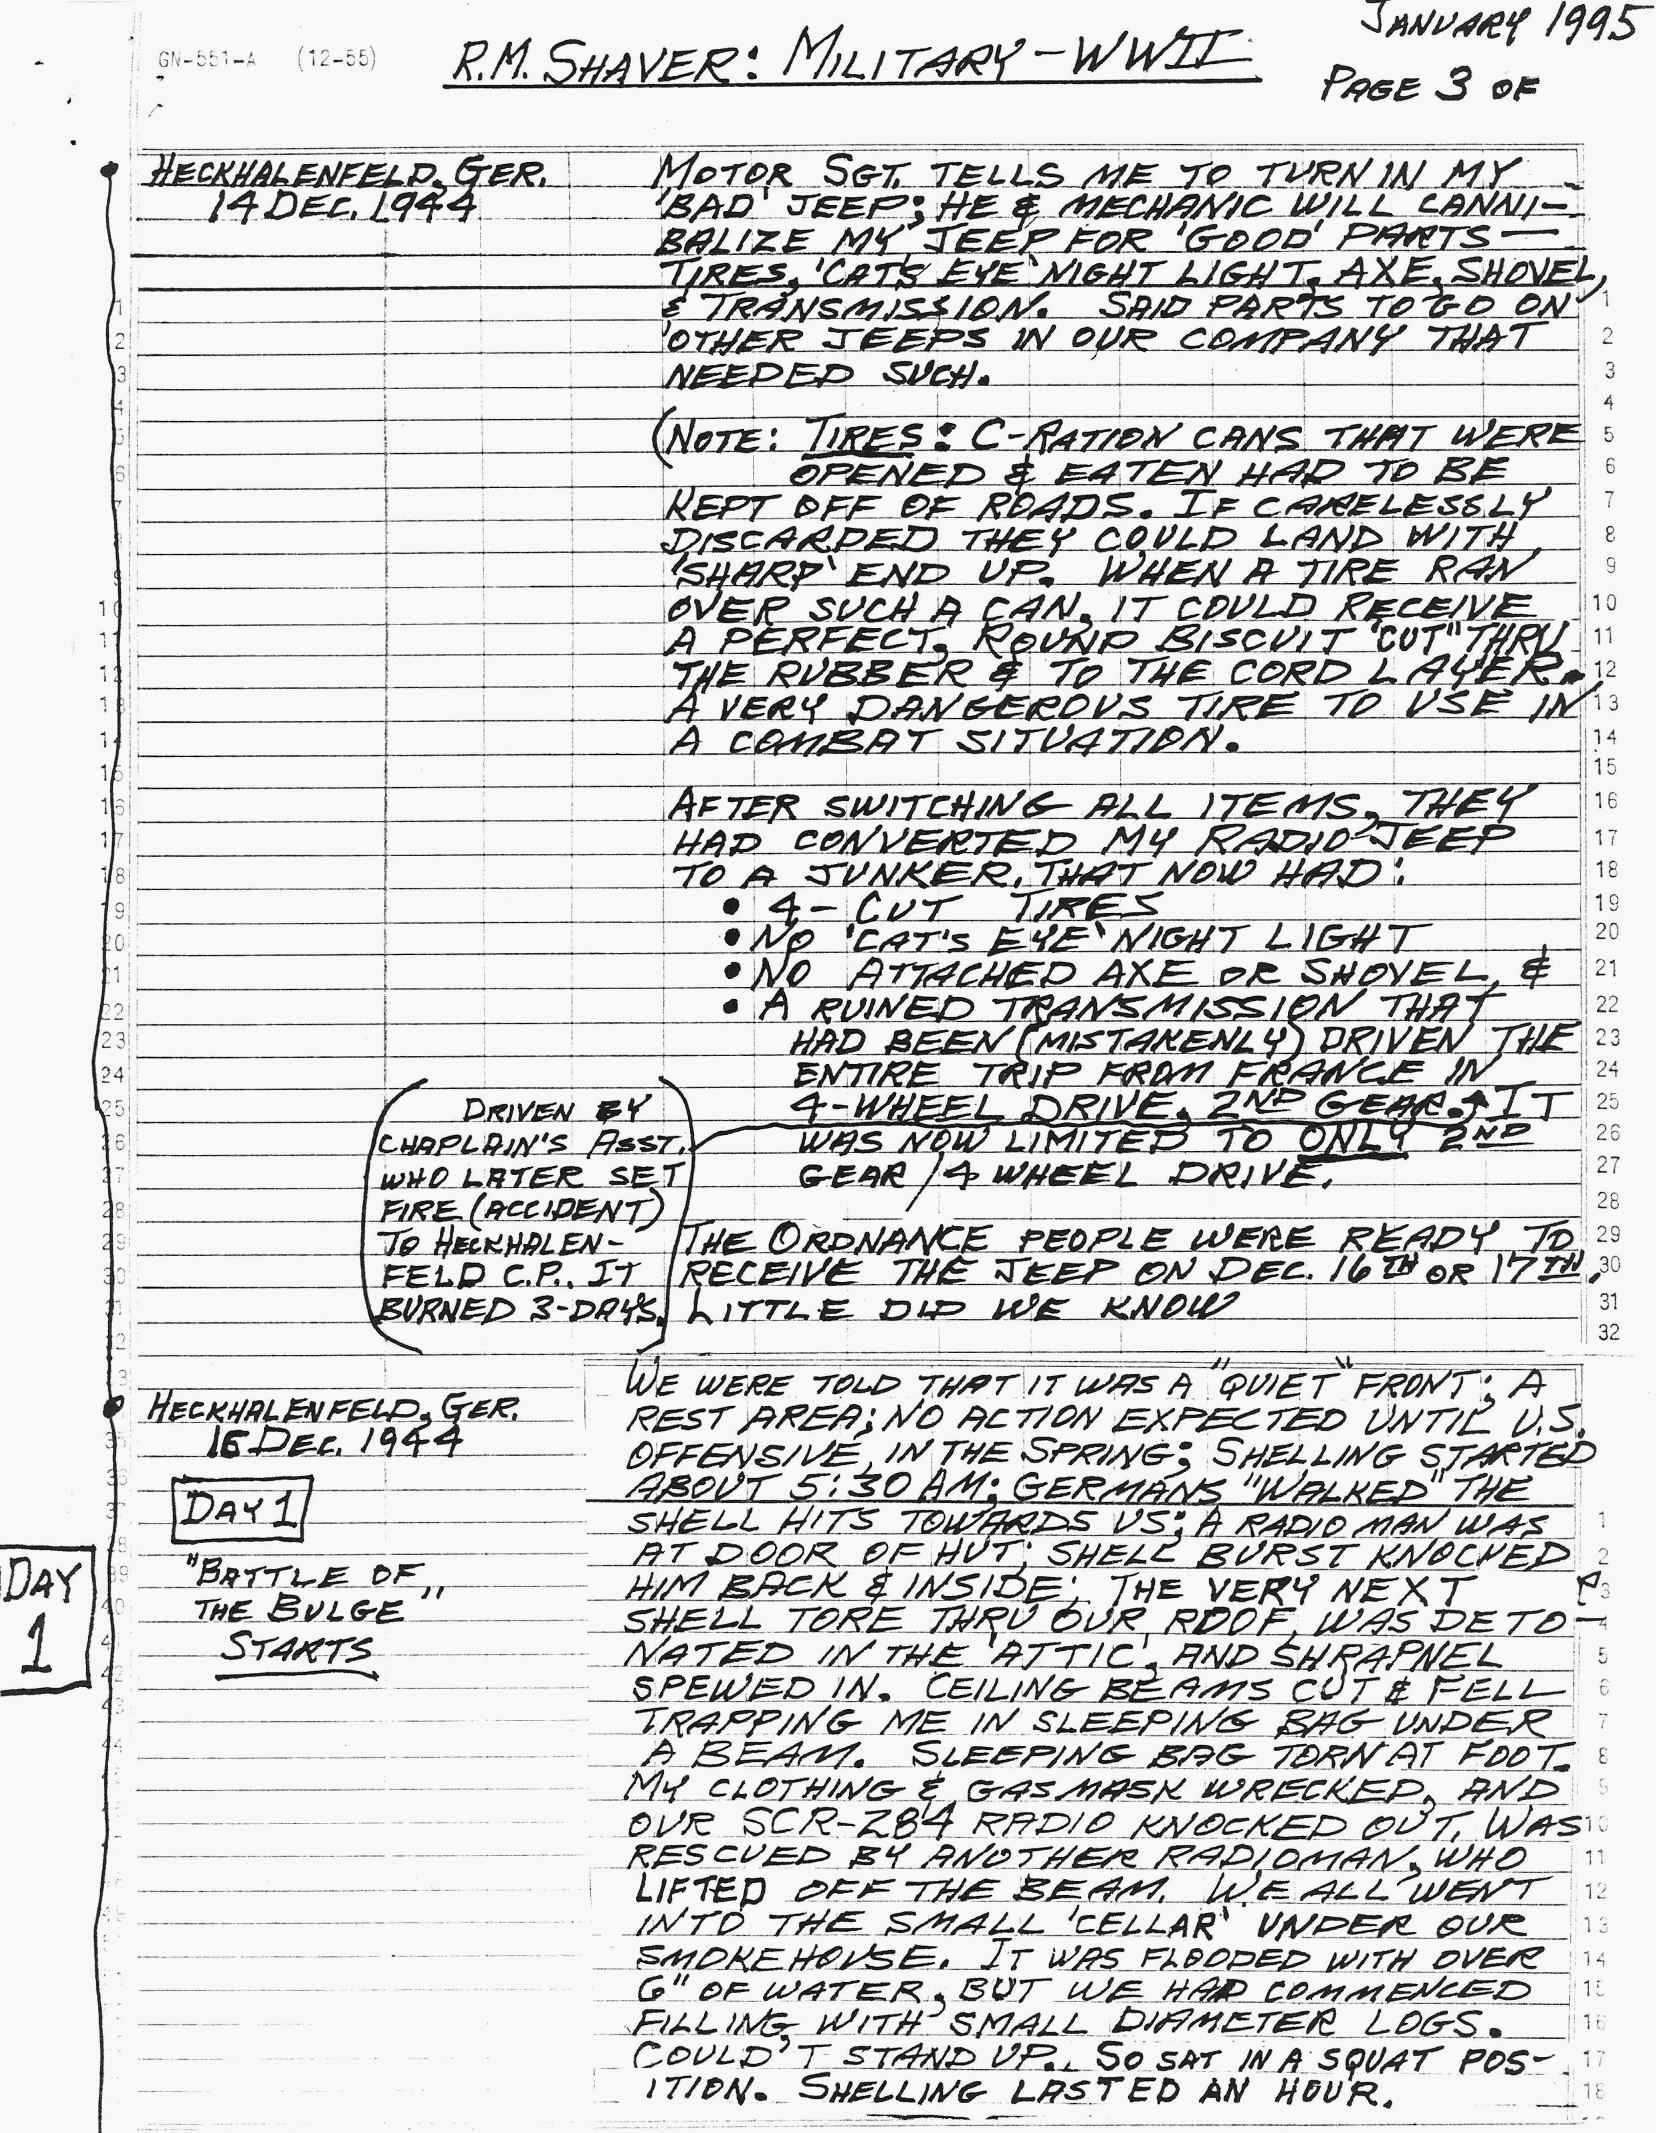 JANUARY 1995
GN-551-A (12-55)
R.M. SHAVER: MILITARY-WWII
PAGE 3 OF
HECKHALENFELD, GER.
14 DEC. 1944
MOTOR SGT. TELLS ME TO TURN IN MY
'BAD' JEEP; HE & MECHANIC WILL CANNI-
BALIZE MY JEEP FOR 'GOOD' PARTS—
TIRES, 'CAT'S EYE' NIGHT LIGHT, AXE, SHOVEL,
& TRANSMISSION. SAID PARTS TO GO ON
OTHER JEEPS IN OUR COMPANY THAT
NEEDED SUCH.
(NOTE: TIRES: C-RATION CANS THAT WERE
OPENED & EATEN HAD TO BE
KEPT OFF OF ROADS. IF CARELESSLY
DISCARDED THEY COULD LAND WITH
'SHARP' END UP. WHEN A TIRE RAN
OVER SUCH A CAN, IT COULD RECEIVE
A PERFECT, ROUND BISCUIT "CUT" THRU
THE RUBBER & TO THE CORD LAYER.
A VERY DANGEROUS TIRE TO USE IN
A COMBAT SITUATION.
AFTER SWITCHING ALL ITEMS, THEY
HAD CONVERTED MY RADIO JEEP
TO A JUNKER, THAT NOW HAD:
• 4- CUT TIRES
• NO 'CAT'S EYE' NIGHT LIGHT
• NO ATTACHED AXE OR SHOVEL, &
• A RUINED TRANSMISSION THAT
HAD BEEN (MISTAKENLY) DRIVEN THE
ENTIRE TRIP FROM FRANCE IN
4-WHEEL DRIVE, 2ND GEAR. IT
WAS NOW LIMITED TO ONLY 2ND
GEAR/4 WHEEL DRIVE.
DRIVEN BY
CHAPLAIN'S ASST.
WHO LATER SET
FIRE (ACCIDENT)
TO HECKHALEN-
FELD C.P.. IT
BURNED 3-DAYS.
THE ORDNANCE PEOPLE WERE READY TO
RECEIVE THE JEEP ON DEC. 16TH OR 17TH.
LITTLE DID WE KNOW
HECKHALENFELD, GER.
16 DEC. 1944
DAY 1
DAY
1
"BATTLE OF
THE BULGE"
STARTS
WE WERE TOLD THAT IT WAS A "QUIET" FRONT; A
REST AREA; NO ACTION EXPECTED UNTIL U.S.
OFFENSIVE IN THE SPRING; SHELLING STARTED
ABOUT 5:30 AM; GERMANS "WALKED" THE
SHELL HITS TOWARDS US; A RADIO MAN WAS
AT DOOR OF HUT; SHELL BURST KNOCKED
HIM BACK & INSIDE; THE VERY NEXT
SHELL TORE THRU OUR ROOF, WAS DETO-
NATED IN THE 'ATTIC', AND SHRAPNEL
SPEWED IN. CEILING BEAMS CUT & FELL
TRAPPING ME IN SLEEPING BAG UNDER
A BEAM. SLEEPING BAG TORN AT FOOT.
MY CLOTHING & GAS MASK WRECKED, AND
OUR SCR-284 RADIO KNOCKED OUT. WAS
RESCUED BY ANOTHER RADIOMAN, WHO
LIFTED OFF THE BEAM. WE ALL WENT
INTO THE SMALL 'CELLAR' UNDER OUR
SMOKEHOUSE. IT WAS FLOODED WITH OVER
6" OF WATER, BUT WE HAD COMMENCED
FILLING WITH SMALL DIAMETER LOGS.
COULD'T STAND UP.. SO SAT IN A SQUAT POS-
ITION. SHELLING LASTED AN HOUR.